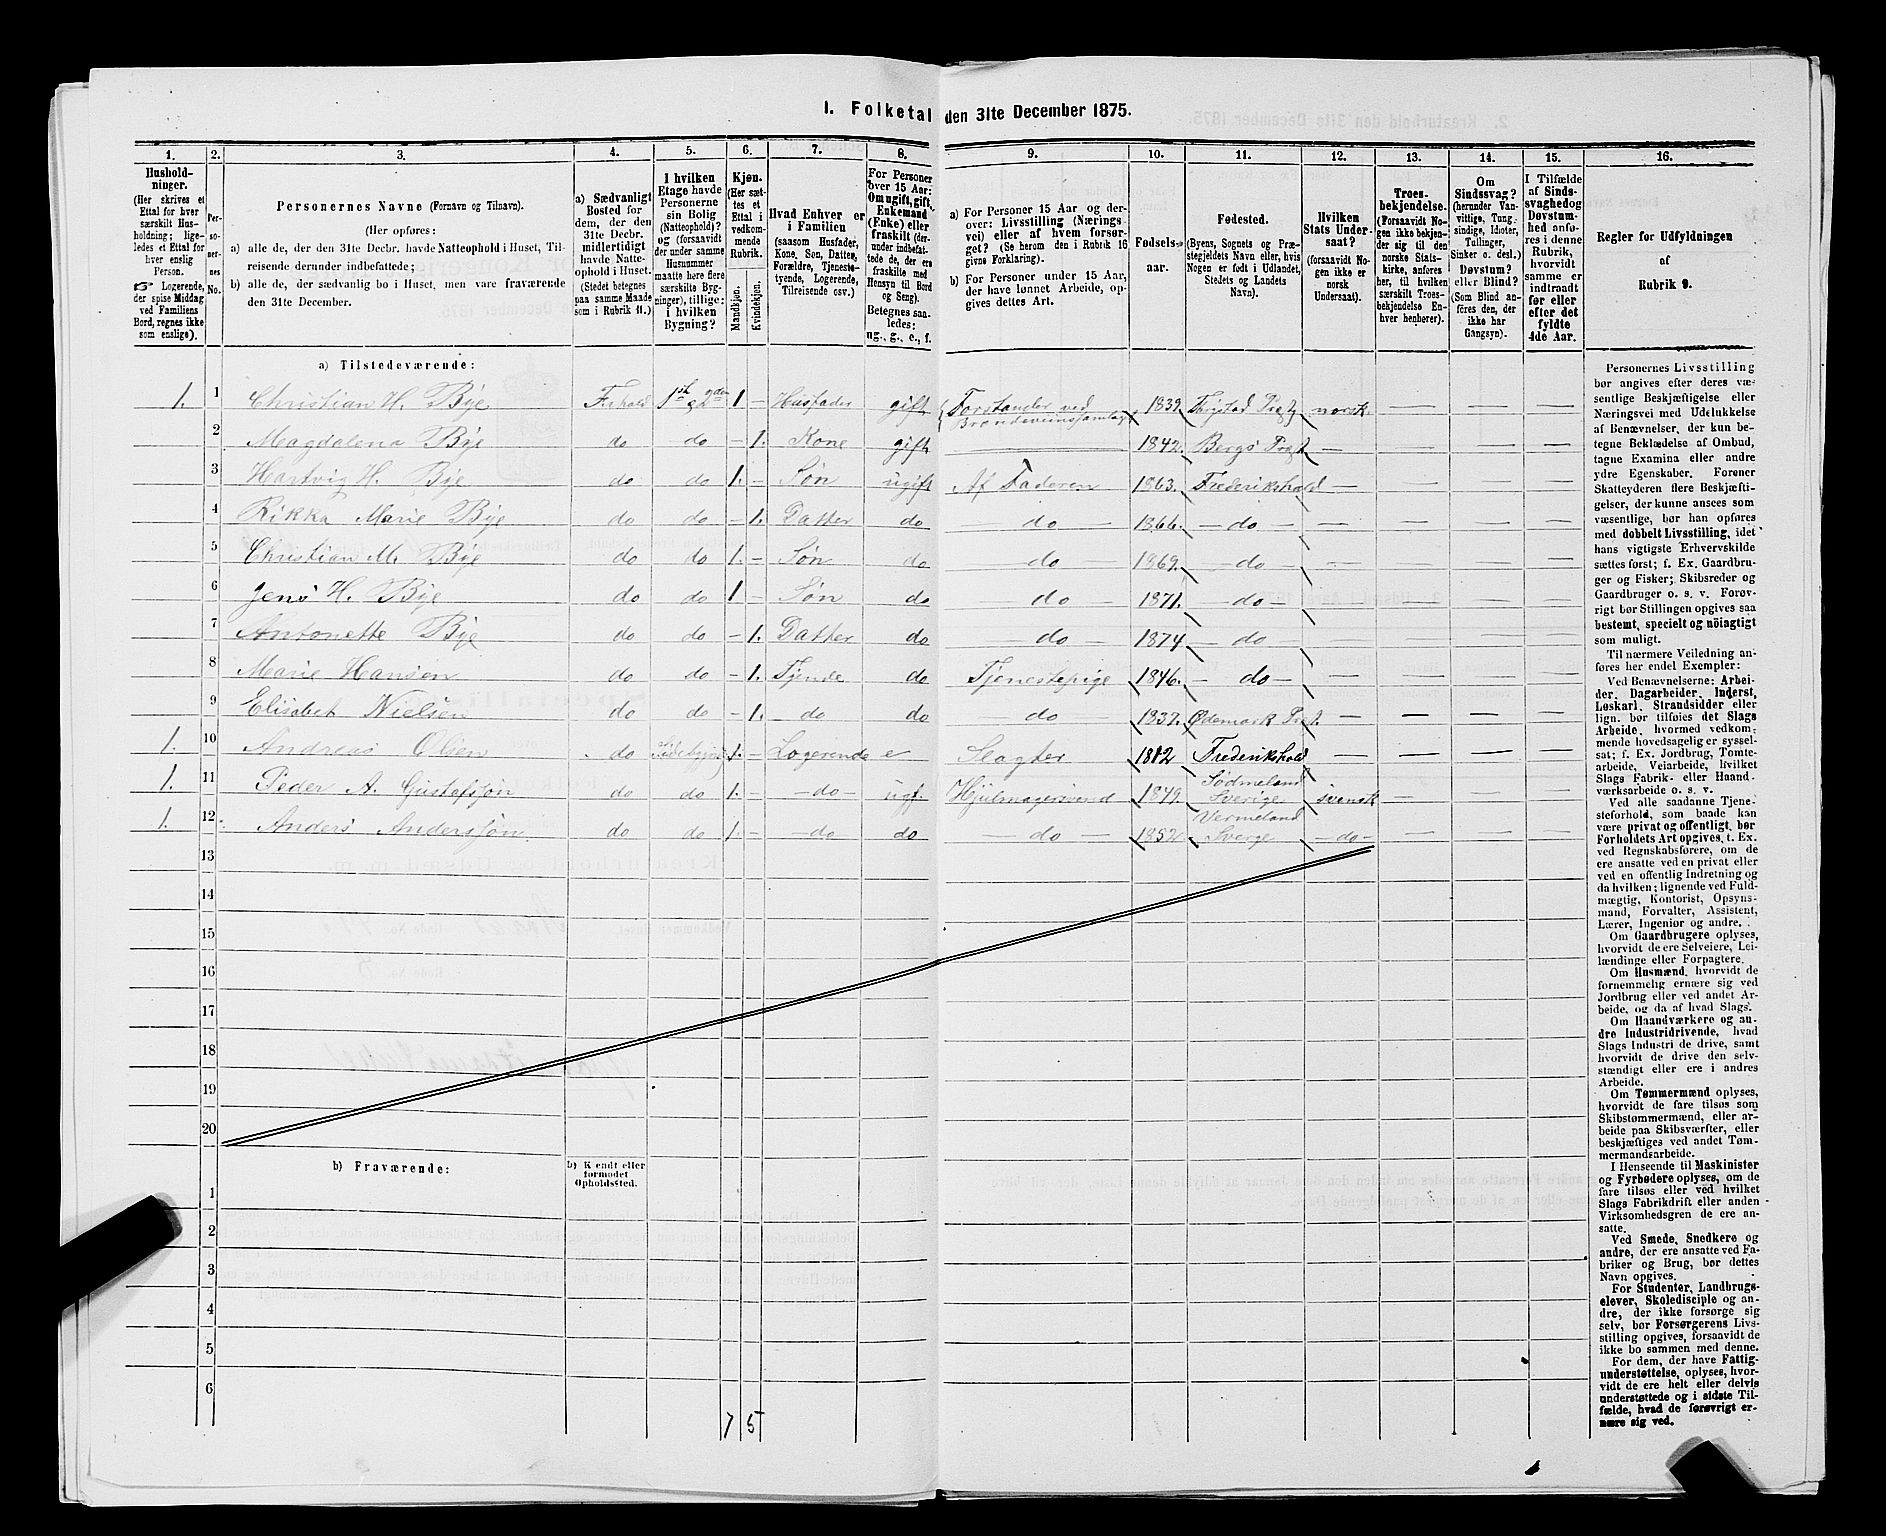 1. Folketal den 31te December 1875.
1. 2. 3. 4. 5. 6. 7. 8. 9. 10. 11. 12. 13. 14. 15. 16.
Hushold-
ninger.
(Her skrives et
Ettal for hver
særskilt Hus-
holdning; lige-
ledes et Ettal for
hver enslig
Person.
☞ Logerende,
der spise Middag
ved Familiens
Bord, regnes ikke
som enslige).
Per-
so-
ner-
nes
No.
Personernes Navne (Fornavn og Tilnavn).
(Her opføres:
a) alle de, der den 31te Decbr. havde Natteophold i Huset, Til-
reisende derunder indbefattede;
b) alle de, der sædvanlig bo i Huset, men vare fraværende
den 31te December.
a) Sædvanligt
Bosted for
dem, der den
31te Decbr.
midlertidigt
havde Natte-
ophold i Huset.
(Stedet betegnes
paa samme Maade
som i Rubrik 11.)
I hvilken
Etage havde
Personerne
sin Bolig
(Natteophold)?
og (forsaavidt
der under samme
Husnummer
maatte høre flere
særskilte Byg-
ninger), tillige:
i hvilken
Bygning?
Kjøn.
(Her sæt-
tes et
Ettal i
vedkom-
mende
Rubrik.
Mandkjøn.
Kvindekjøn.
Hvad Enhver er
i Familien
(saasom Husfader,
Kone, Søn, Datter,
Forældre, Tjeneste-
tyende, Logerende,
Tilreisende osv.)
For Personer
over 15 Aar:
Om ugift, gift,
Enkemand
(Enke) eller
fraskilt (der-
under indbefat-
tede de, der ere
fraskilte med
Hensyn til Bord
og Seng).
Betegnes saa-
ledes:
ug., g., e., f.
a) For Personer 15 Aar og der-
over: Livsstilling (Nærings-
vei) eller af hvem forsør-
get? (Se herom den i Rubrik 16
givne Forklaring).
b) For Personer under 15 Aar,
der have lønnet Arbeide, op-
gives dettes Art.
Fødsels-
aar.
Fødested.
(Byens, Sognets og Præ-
stegjeldets Navn eller, hvis
Nogen er født i Udlandet,
Stedets og Landets
Navn).
Hvilken
Stats Under-
saat?
(forsaavidt No-
gen ikke er
norsk
Undersaat).
Troes-
bekjendelse.
(Forsaavidt No-
gen ikke bekjen-
der sig til den
norske Stats-
kirke, anføres
her, til hvilken
særskilt Troes-
bekjendelse En-
hver henhører).
Om
Sindssvag?
(herunder Van-
vittige, Tung-
sindige, Idioter,
Tullinger,
Sinker o. desl.)
Døvstum?
eller Blind?
(Som Blind an-
føres den, der
ikke har
Gangsyn).
I Tilfælde
af Sinds-
svaghed og
Døvstum-
hed anfø-
res i denne
Rubrik,
hvorvidt
samme er
indtraadt
før eller
efter det
fyldte
4de Aar.
Regler for Udfyldningen
af
Rubrik 9.
a) Tilstedeværende:
1. 1 Christian H. Bye F.rhald 1ste & 2den 1 – Husfader gift Forstander ved Brændeviinssamlag 1839 Thrystad Prgj norsk – – –
2 Magdalena Bye do do – 1. Kone gift – 1842. Bergs Prgj – – – –
3 Hartvig H. Bye do do 1. – Søn ugift Af Faderen 1863. Frederikshald – – – –
4 Rikka Marie Bye do do – 1. Datter do – do – 1866. – do – – – – –
5 Christian M. Bye do do 1. – Søn do – do – 1869. – do – –
6 Jens H. Bye do do 1 – Søn do do – 1871. – do – – – – –
7 Antonette Bye do do – 1. Datter do – do – 1874 – do – – –
8 Marie Hansen do do – 1. Tjende do Tjenestepige 1846. – do – – – –
9 Elisabet Nielsen do do – 1. – do do – do – 1837. Ødemark Prgj. – – – –
1. 10 Andreas Olsen do Sidebygning 1. – Logerende e Slagter 1812 Frederikshald – – –
1. 11 Peder A. Gustafsjon do do 1. – – do – ugf. Hjulmagersvend 1849. Södmeland Sverige svensk – – –
1. 12 Anders Andersjon do do 1 – – do do – do – 1852 Vermeland Sverge – do – – – –
13
14
15
16
17
18
19
20
b) Fraværende:
b) Kendt eller
formodet
Opholdssted.
1
2
3
4
5
6
7 5
Personernes Livsstilling
bør angives efter deres væ-
sentlige Beskjæftigelse eller
Næringsvei med Udelukkelse
af Benævnelser, der kun be-
tegne Beklædelse af Ombud,
tagne Examina eller andre
ydre Egenskaber. Forener
Skatteyderen flere Beskjæfti-
gelser, der kunne ansees som
væsentlige, bør han opføres
med dobbelt Livsstilling, idet
hans vigtigste Erhvervskilde
sættes først; f. Ex. Gaardbru-
ger og Fisker; Skibsreder og
Gaardbruger o. s. v. Forøv-
rigt bør Stillingen opgives saa
bestemt, specielt og nöiagtigt
som muligt.
Til nærmere Veiledning an-
føres her endel Exempler:
Ved Benævnelserne: Arbei-
der, Dagarbeider, Inderst,
Løskarl, Strandsidder eller
lign. bør tilføies det Slags
Arbeide, hvormed vedkom-
mende hovedsagelig er syssel-
sat; f. Ex. Jordbrug, Tomte-
arbeide, Veiarbeide, hvilket
Slags Fabrik- eller Haand-
værksarbeide o. s. v.
Ved alle saadanne Tjene-
steforhold, som baade kan
være privat og offentligt, bør
Forholdets Art opgives, t. Ex.
ved Regnskabsførere, om de
ere ansatte ved en privat eller
ved en offentlig Indretning og
da hvilken; lignende ved Fuld-
mægtig, Kontorist, Opsyns-
mand, Forvalter, Assistent,
Lærer, Ingeniør og andre.
Om Gaardbrugere oplyses,
hvorvidt de ere Selveiere, Lei-
lændinge eller Forpagtere.
Om Husmænd, hvorvidt de
fornemmelig ernære sig ved
Jordbrug eller ved andet Ar-
beide, og da af hvad Slags.
Om Haandværkere og an-
dre Industridrivende, hvad
Slags Industri de drive, samt
hvorvidt de drive den selv-
stændigt eller ere i andres
Arbeide.
Om Tømmermænd oplyses,
hvorvidt de fare tilsøs som
Skibstømmermænd, eller ar-
beide paa Skibsværfter, eller
beskjæftiges ved andet Tøm-
mermandsarbeide.
I Henseende til Maskinister
og Fyrbødere oplyses, om de
fare tilsøs eller ved hvilket
Slags Fabrikdrift eller anden
Virksomhedsgren de ere an-
satte.
Ved Smede, Snedkere og
andre, der ere ansatte ved Fa-
briker og Brug, bør dettes
Navn opgives.
For Studenter, Landbrugs-
elever, Skoledisciple og an-
dre, der ikke forsørge sig
selv, bør Forsørgerens Livs-
stilling opgives, forsaavidt de
ikke bo sammen med denne.
For dem, der have Fattig-
understøttelse, oplyses, hvor-
vidt de ere helt eller delvis
understøttede og i sidste Til-
fælde, hvad de forøvrigt er-
nære sig ved.